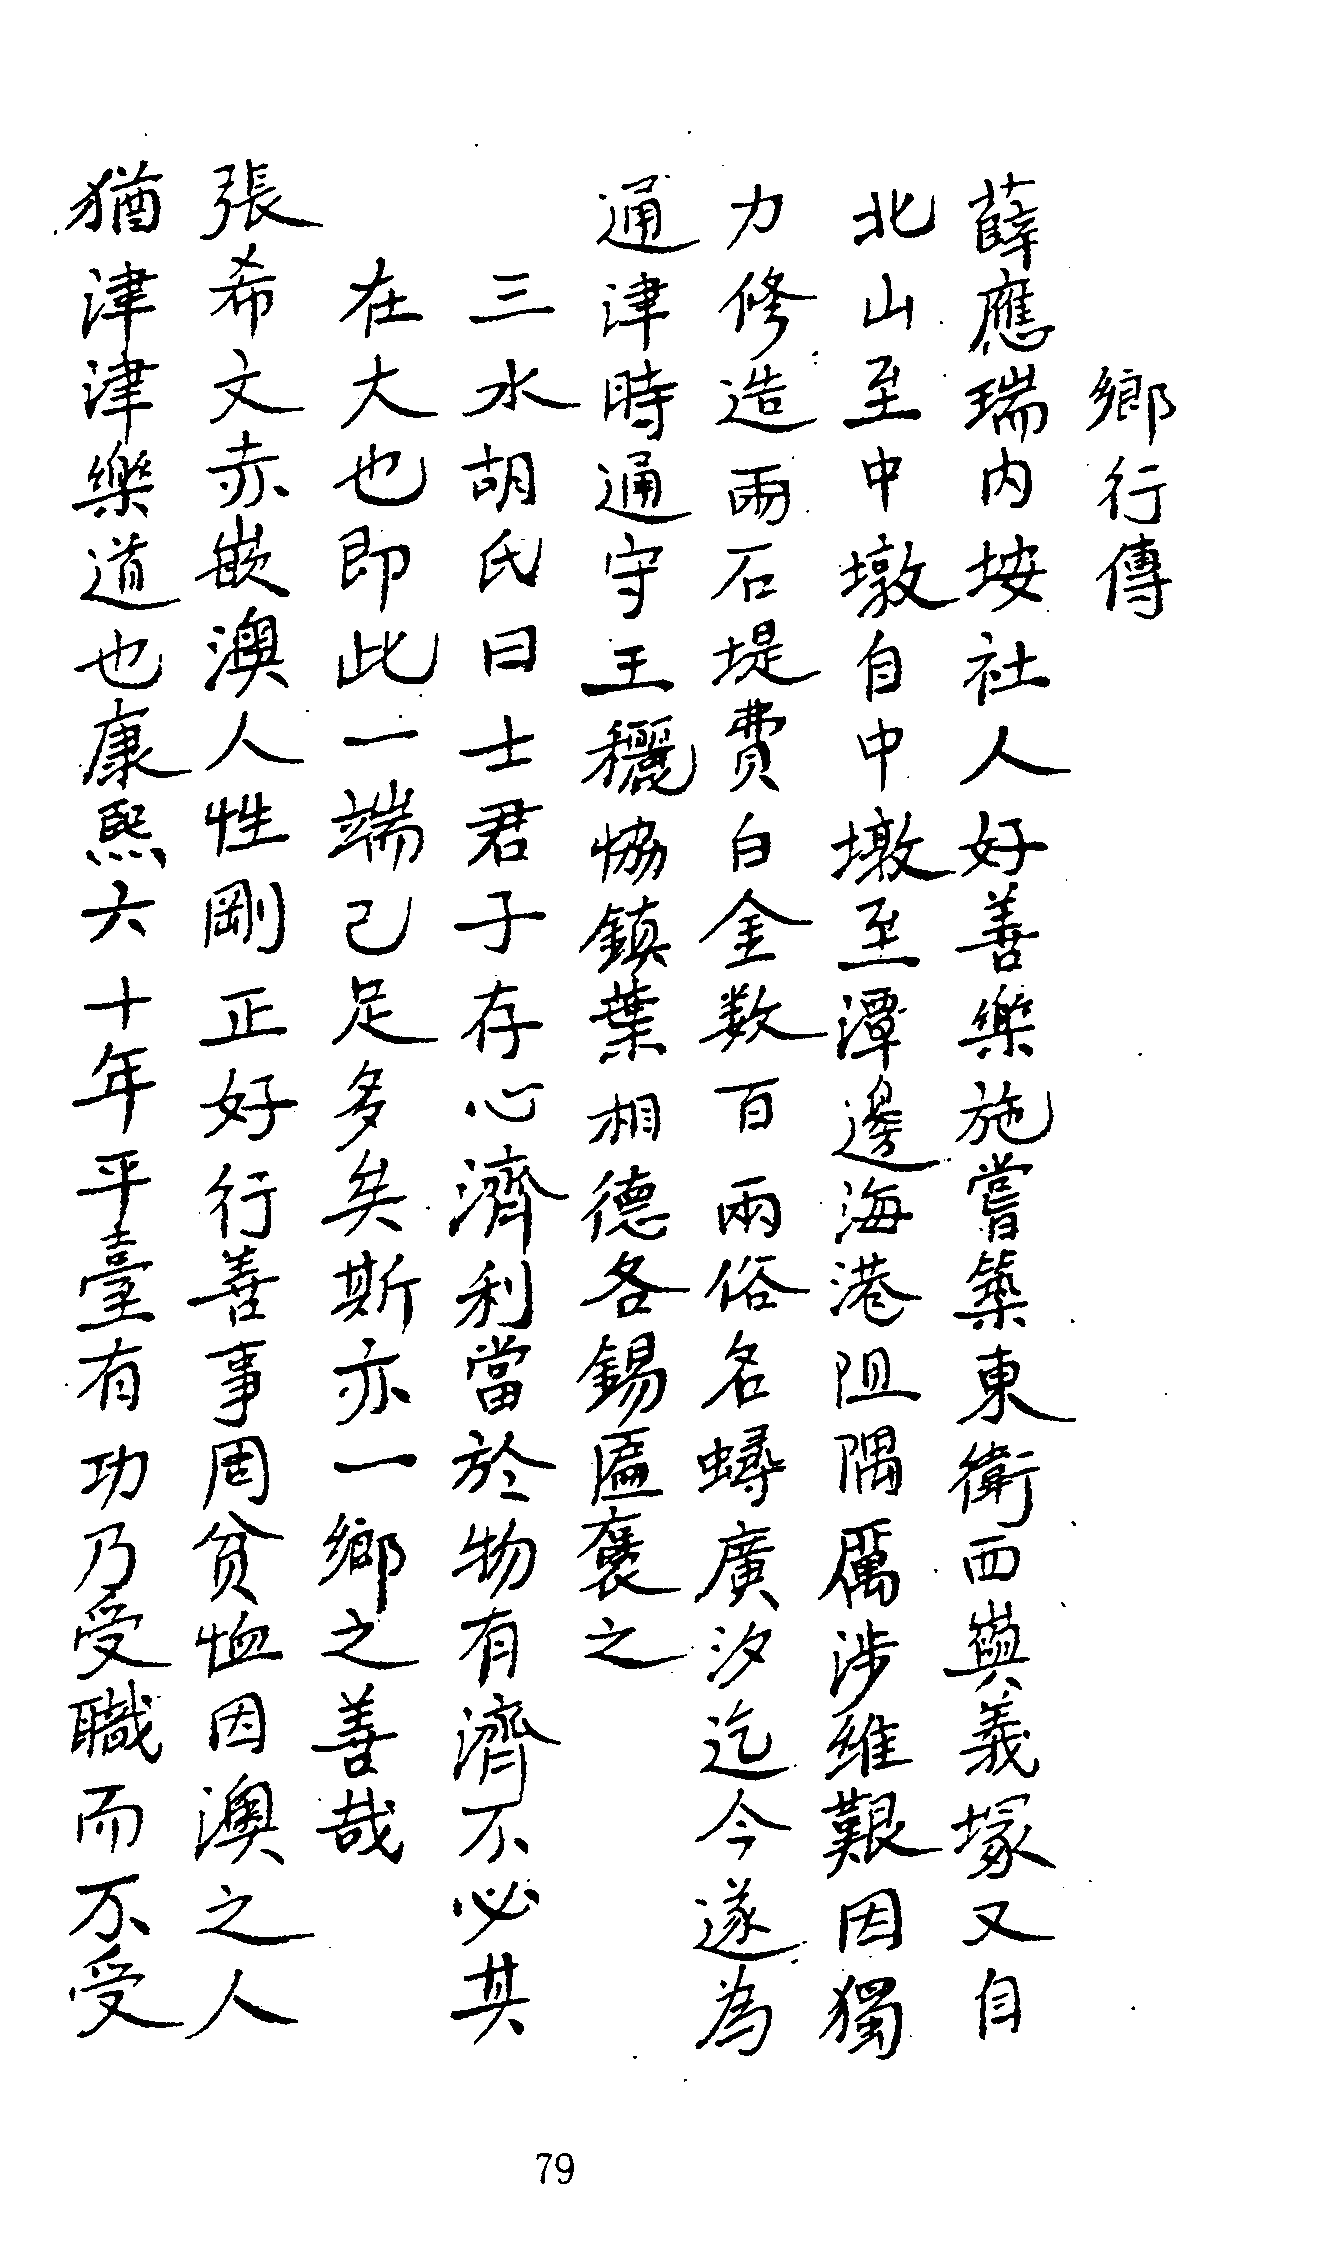 鄉行傳
薛應瑞內垵社人好善樂施嘗築東衛西嶼義塚又自
北山至中墩自中墩至潭邊海港阻隅厲涉維艱因獨
力修造兩石堤費白金数百兩俗名蟳廣汐迄今遂為
通津時通守王穲恊鎮葉相德各錫匾褒之
三水胡氏曰士君子存心濟利當於物有濟不必其
在大也即此一端己足多矣斯亦一鄉之善哉
張希文赤嵌澳人性剛正好行善事周貧恤因澳之人
猶津津樂道也康熙六十年平臺有功乃受職而不受
79